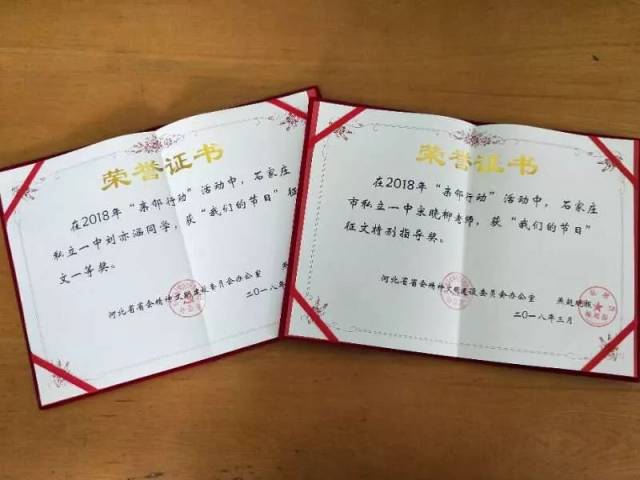 荣誉证书
在2018年“亲邻行动”活动中，石家庄
私立一中刘亦涵同学，获“我们的节日”征
文一等奖。
河北省省会精神文明建设委员会办公室 燕
二〇一八年
荣誉证书
在2018年“亲邻行动”活动中，石家庄
市私立一中宋晓柳老师，获“我们的节日”
征文特别指导奖。
河北省省会精神文明建设委员会办公室 燕赵晚报
二〇一八年三月